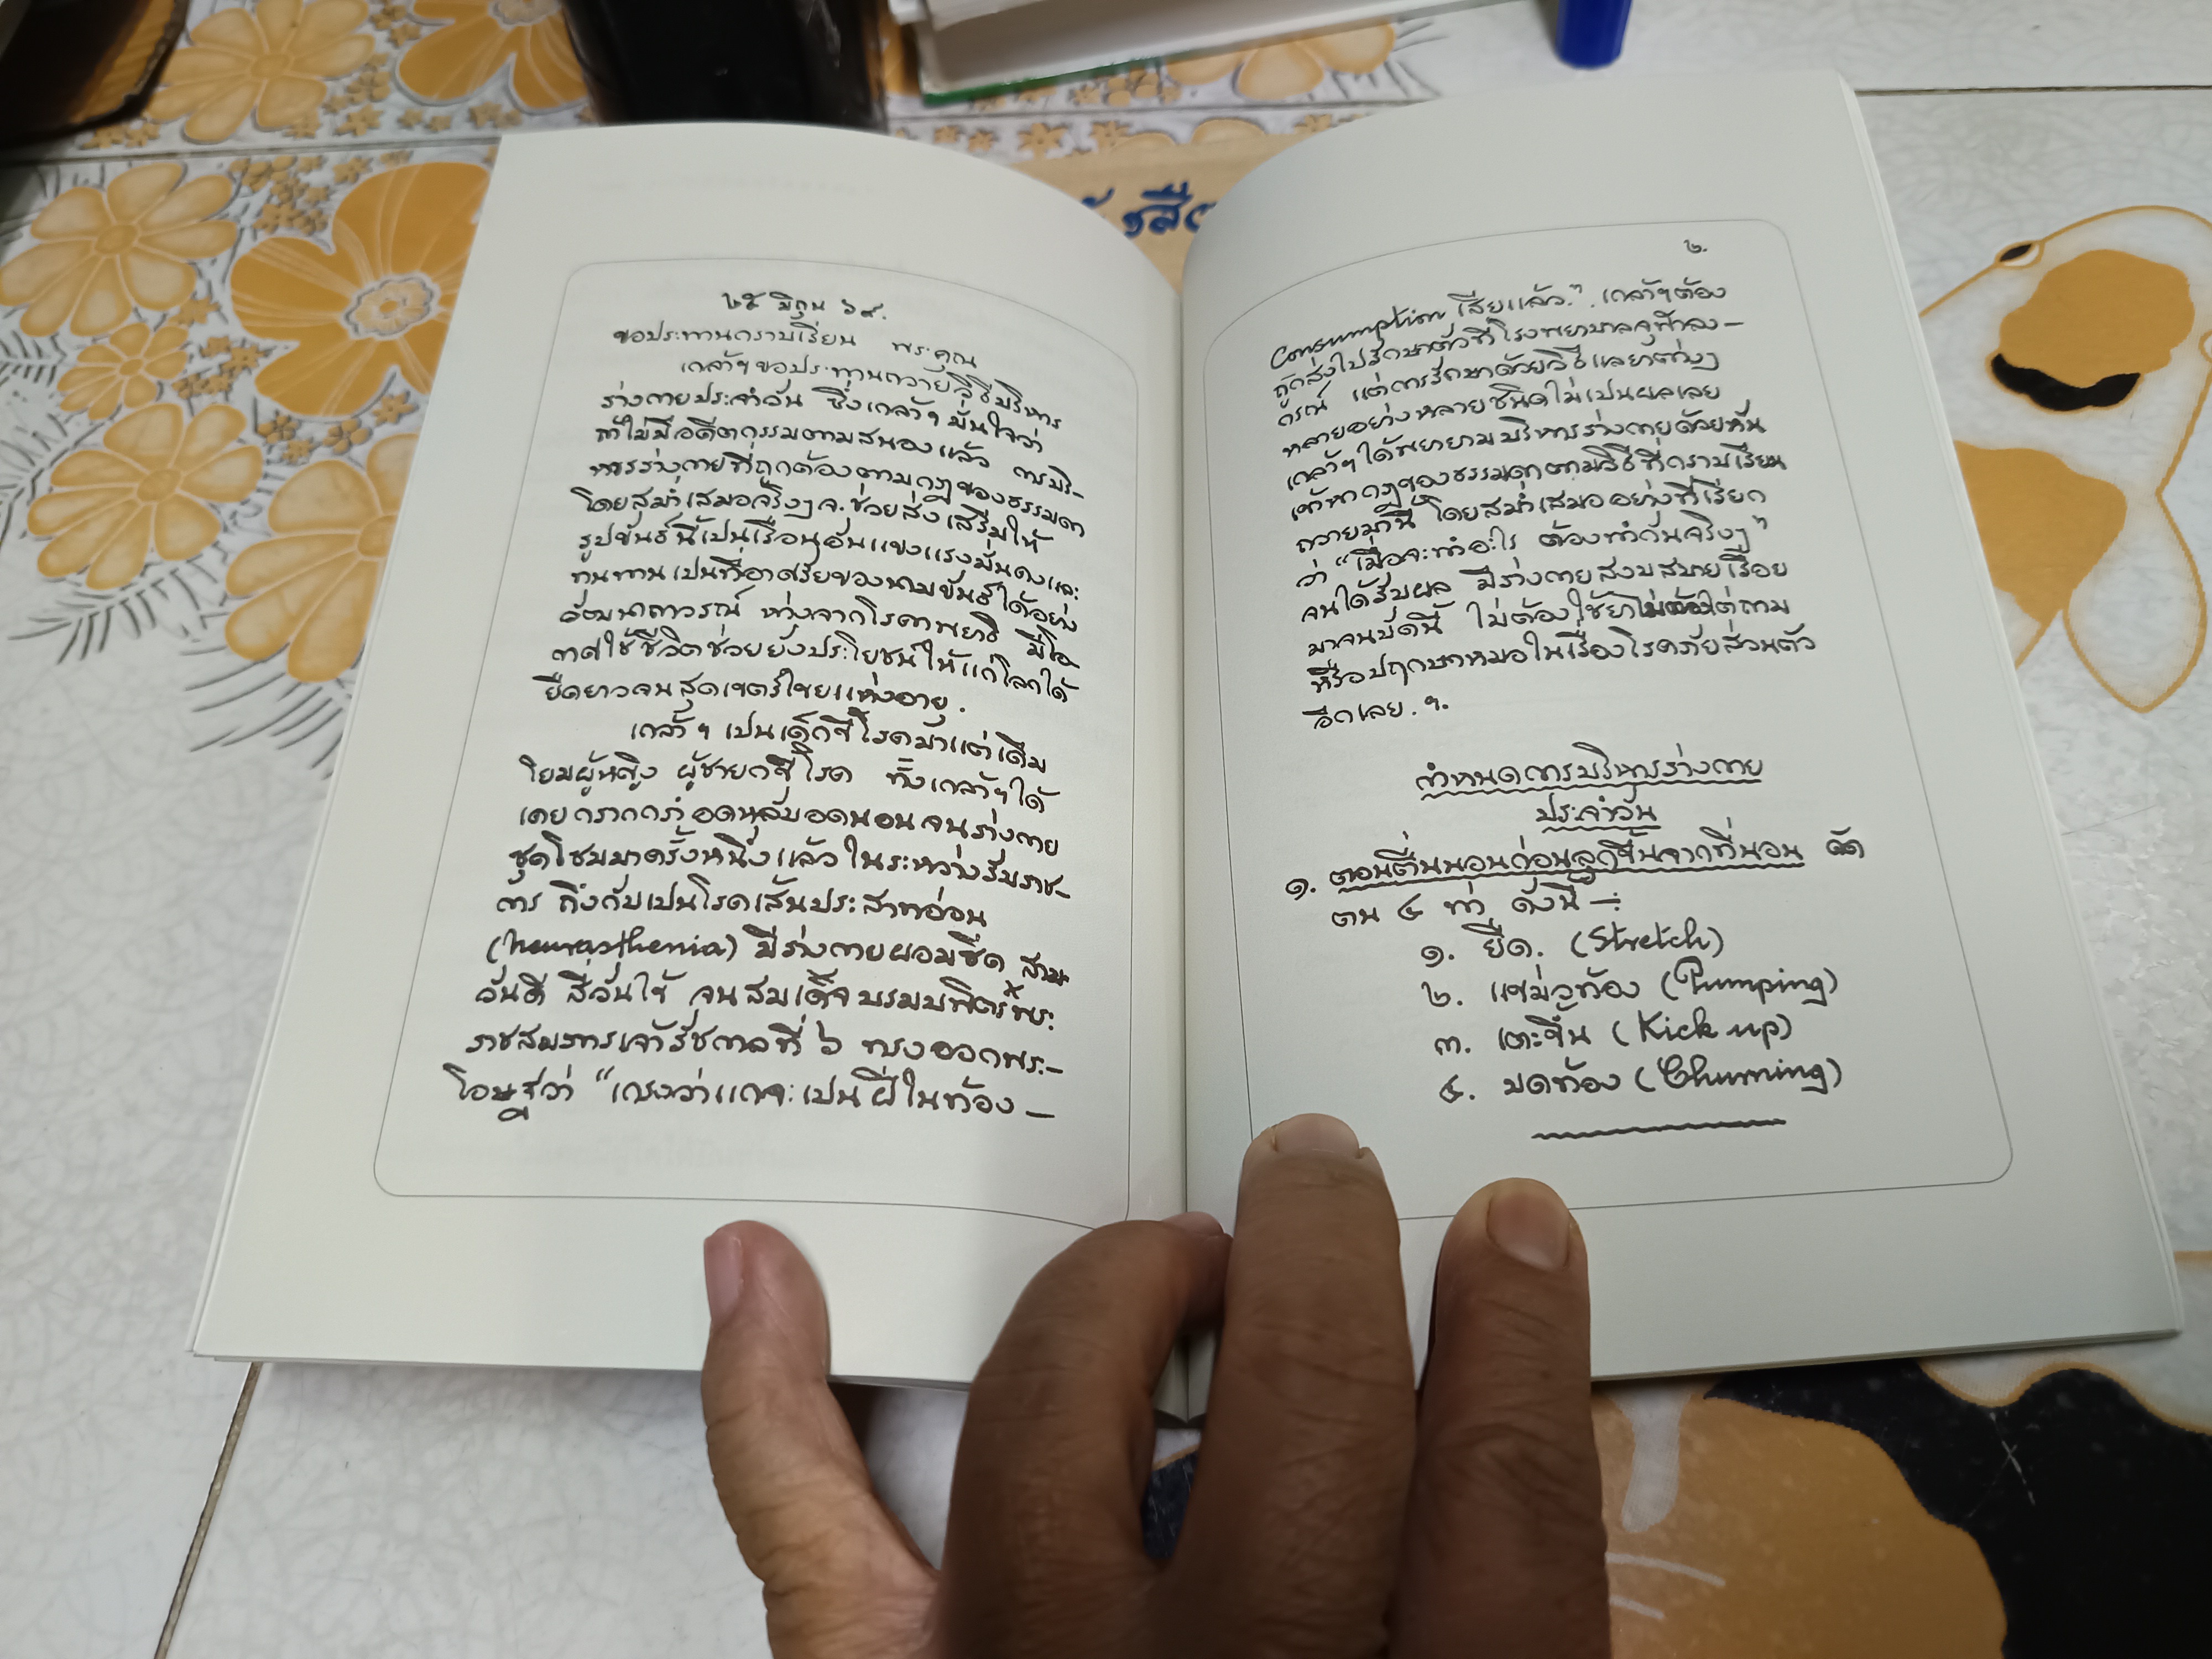 ๒๕ มิถุน ๖๙.
ขอประทานกราบเรียน พระคุณ
เกล้าฯ ขอประทานถวายวิธีบริหาร
ร่างกายประจำวัน ซึ่งเกล้าฯ มั่นใจว่า
ถ้าไม่มีอดีตกรรมตามสนองแล้ว การบริ-
หารร่างกายที่ถูกต้องตามกฎของธรรมดา
โดยสม่ำเสมอจริงๆ จะช่วยส่งเสริมให้
รูปขันธ์นี้เป็นเรือนอันแขงแรงมั่นคงและ
ทนทานเปนที่อาศรัยของนามขันธ์ได้อย่าง
วัฒนาถาวรณ์ ห่างจากโรคาพยาธิ มีโอ
กาศใช้ชีวิตช่วยยังประโยชน์ให้แก่โลกได้
ยืดยาวจนสุดเขตร์ไขยแห่งอายุ.
เกล้าฯ เปนเด็กขี้โรคมาแต่เดิม
โยมผู้หญิง ผู้ชายก็ขี้โรค ทั้งเกล้าฯ ได้
เคยกรากกรำอดหลับอดนอนจนร่างกาย
ซุดโซมมาครั้งหนึ่งแล้ว ในระหว่างรับราช-
การ ถึงกับเปนโรคเส้นประสาทอ่อน
(Neurasthenia) มีร่างกายผอมซีด สาม
วันดี สี่วันไข้ จนสมเด็จบรมบพิตร์พระ
ราชสมภารเจ้ารัชกาลที่ ๖ ทรงออกพระ-
โอษฐ์ว่า “เกรงว่าแกจะเปนฝีในท้อง —
๒.
Consumption เสียแล้ว.” เกล้าฯ ต้อง
ถูกส่งไปรักษาตัวที่โรงพยาบาลจุฬาลง—
กรณ์ แต่การรักษาด้วยวิธีแลยาต่างๆ
หลายอย่างหลายชนิดไม่เปนผลเลย
เกล้าฯ ได้พยายามบริหารร่างกายด้วยหัน
เข้าหากฎของธรรมดาตามวิธีที่กราบเรียน
ถวายมานี้ โดยสม่ำเสมออย่างที่เรียก
ว่า “เมื่อจะทำอะไร ต้องทำกันจริงๆ”
จนได้รับผล มีร่างกายสงบสบายเรื่อย
มาจนบัดนี้ ไม่ต้องใช้ยาไต่ถาม
หรือปฤกษาหมอในเรื่องโรคภัยส่วนตัว
อีกเลย. ฯ.
กำหนดการบริหารร่างกาย
ประจำวัน
๑. ตอนตื่นนอนก่อนลุกขึ้นจากที่นอน ดัด
ตน ๔ ท่า ดังนี้ —:
๑. ยืด. (Stretch)
๒. แขม่วท้อง (Pumping)
๓. เตะขึ้น (Kick up)
๔. บดท้อง (Churning)